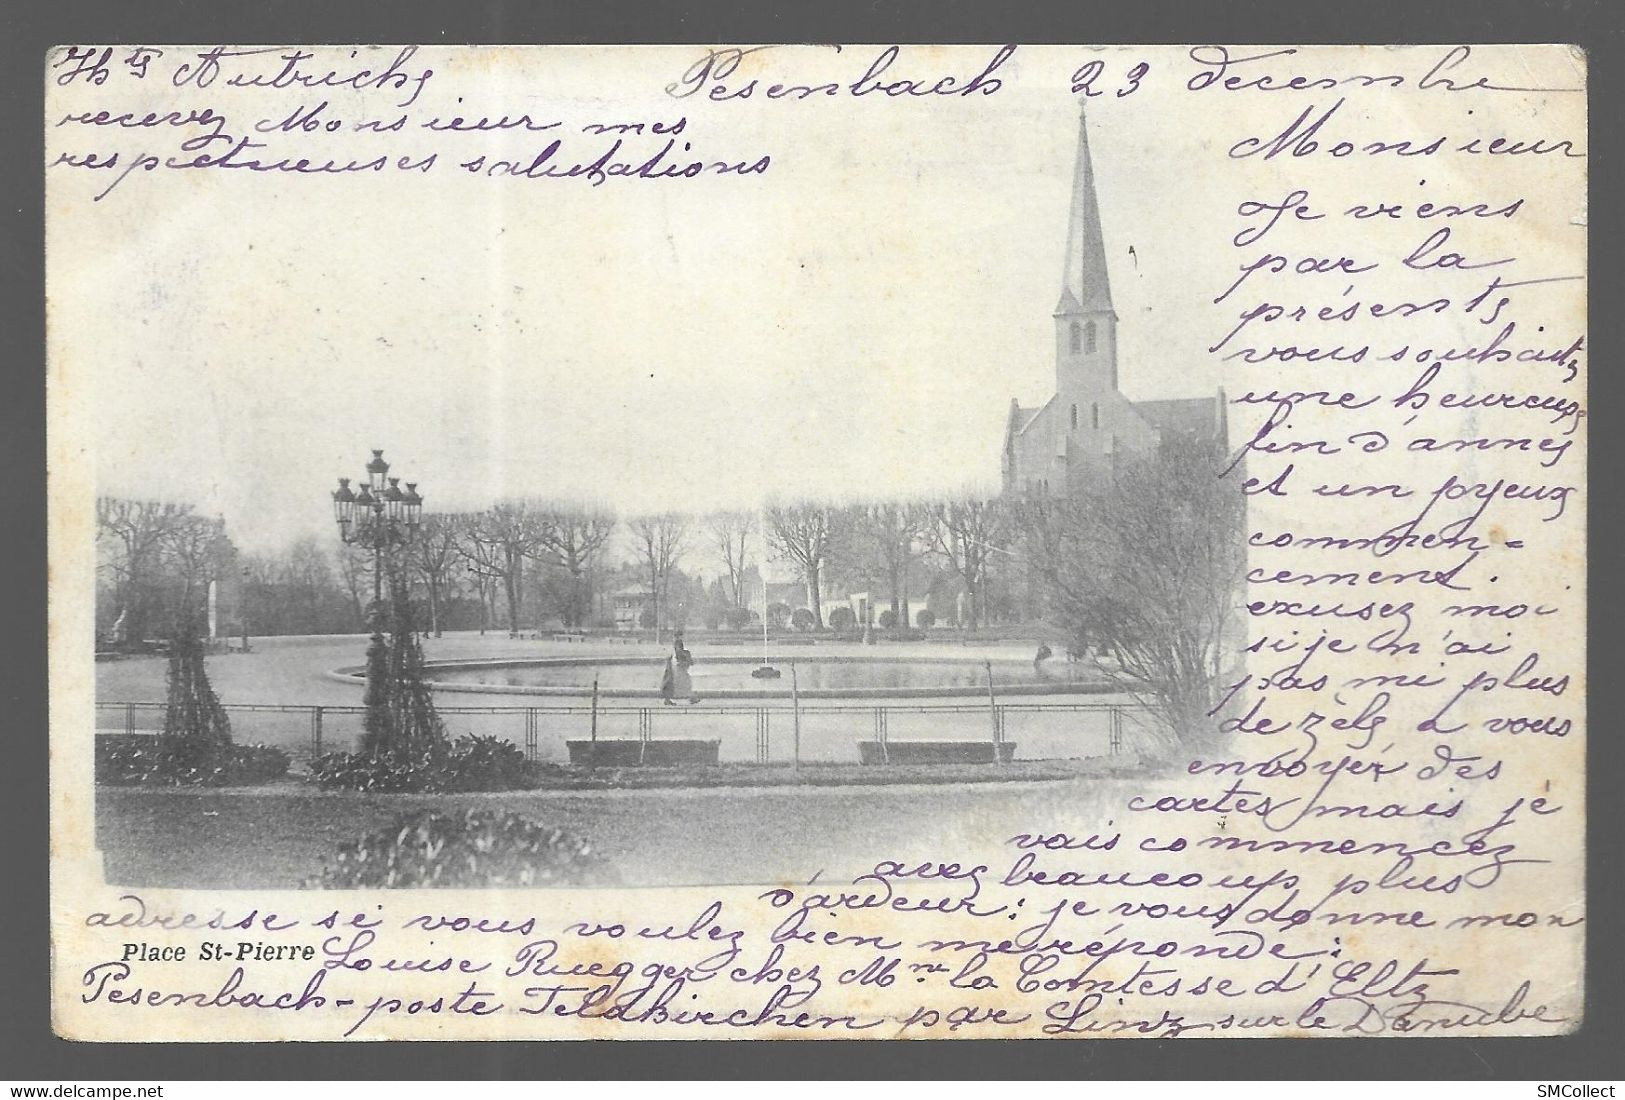 Pesenbach 23 decembre
Monsieur
Je viens
par la
présente
vous souhaite
une heureuse
fin d'année
et un joyeux
commen-
cement.
exusez moi
si je n'ai
pas mi plus
de zèle a vous
envoyer des
cartes mais je
vais commencez
avec beaucoup plus
d'ardeur: je vous donne mon
adresse si vous voulez bien me réponde:
Place St-Pierre
Louise Ruegger chez Mme la Comtesse d'Eltz
Pesenbach-poste Feldkirchen par Linz sur le Danube
Hte Autriche
recevez Monsieur mes
respectueuses salutations
SMCollect